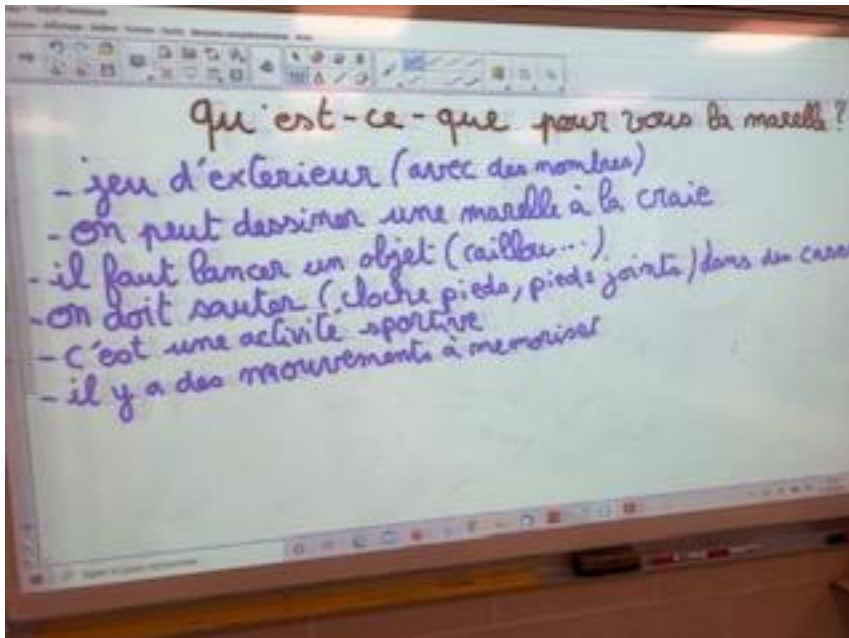 Qu'est-ce-que pour vous la marelle ?
- jeu d'exterieur (avec des nombres)
- on peut dessiner une marelle à la craie
- il faut lancer un objet (caillou...)
- on doit sauter (cloche pieds, pieds joints) dans des cases
- c'est une activité sportive
- il y a des mouvements à memoriser